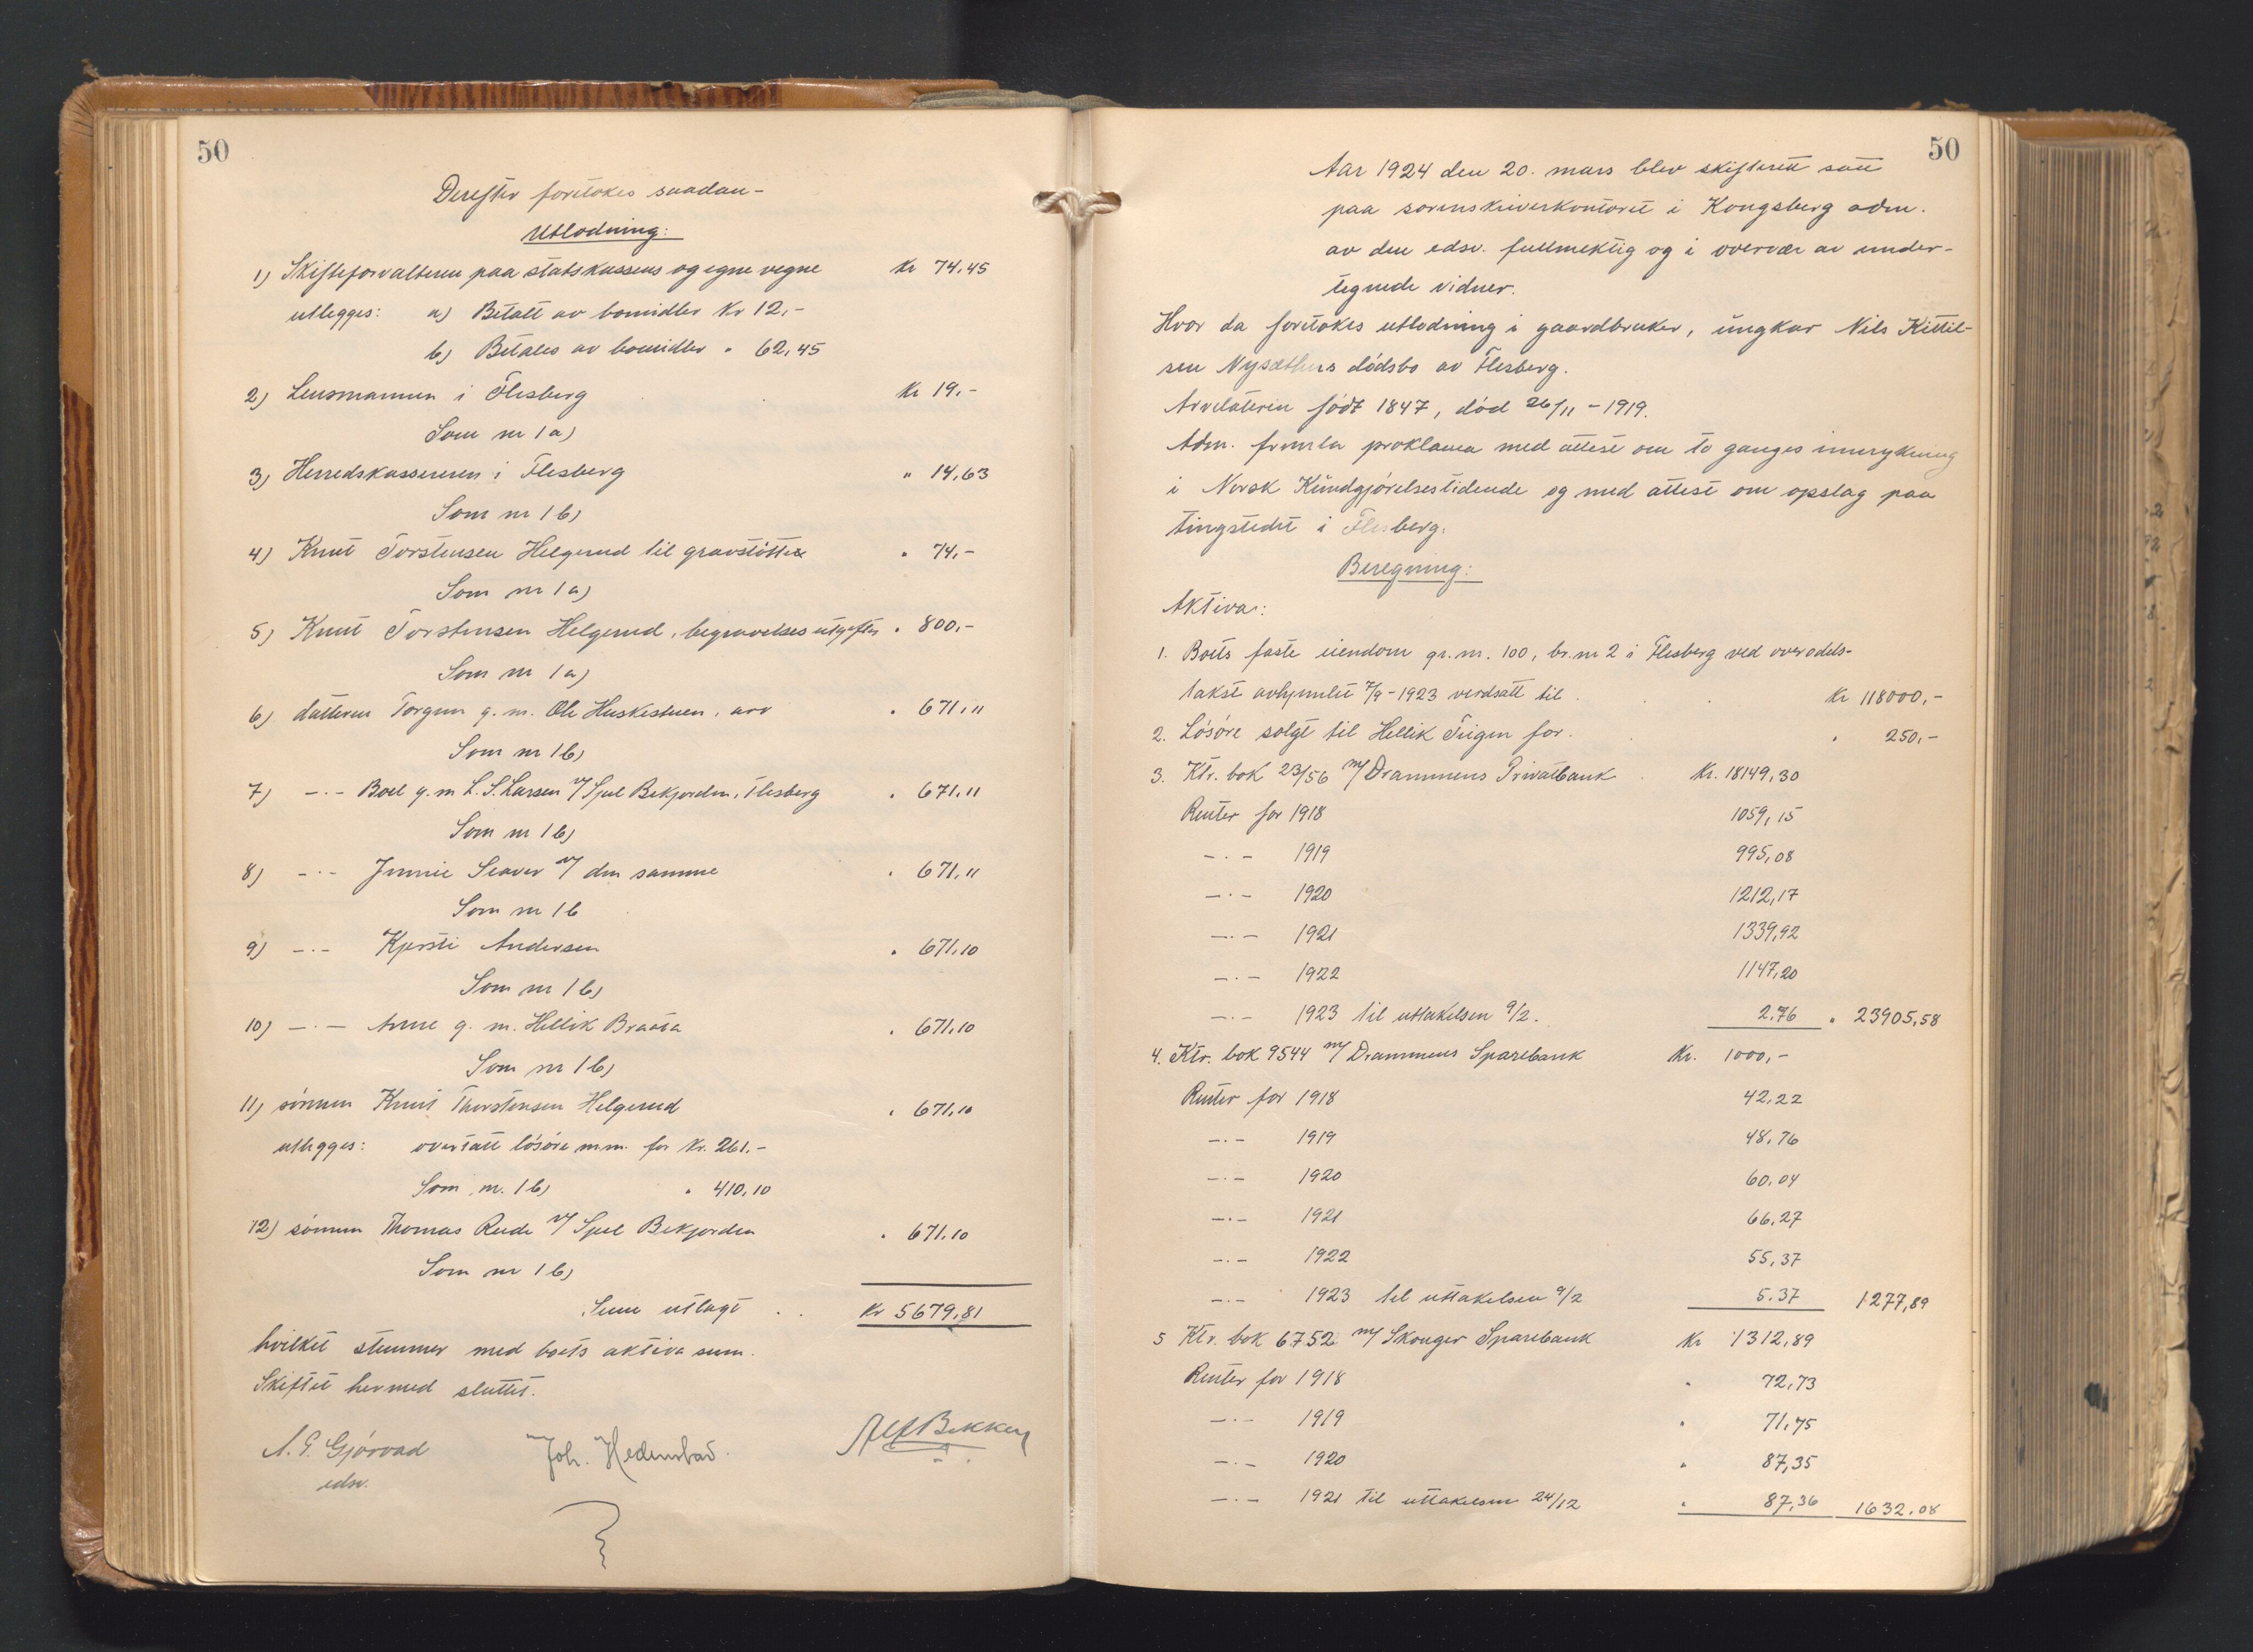 50
Derefter foretokes saadan-
Utlodning:
1) Skifteforvalteren paa statskassens og egne vegne Kr 74,45
utlegges: a) Betalt av bomidler Kr 12,-
b) Betales av bomidler " 62,45
2) Lensmannen i Flesberg Kr 19,-
Som nr 1 a)
3) Herredskassereren i Flesberg " 14,63
Som nr 1 b)
4) Knut Torstensen Helgerud til gravstötte " 74,-
Som nr 1 a)
5) Knut Torstensen Helgerud, begravelsesutgifter " 800,-
Som nr 1 a)
6) datteren Torgun g. m. Ole Huskestuen, arv " 671,11
Som nr 1 b)
7) -.- Boel g. m L. S. Larsen v/ Sjul Bekjorden, Flesberg " 671,11
Som nr 1 b)
8) -.- Jennie Seaver v/ den samme " 671,11
Som nr 1 b
9) -.- Kjersti Andersen " 671,10
Som nr 1 b)
10) -.- Anne g. m. Hellik Braata " 671,10
Som nr 1 b)
11) sönnen Knut Thorstensen Helgerud " 671,10
utlegges: overtatt lösöre m.m. for Kr. 261.-
Som nr. 1 b) " 410,10
12) sönnen Thomas Rude v/ Sjul Bekjorden " 671,10
Som nr 1 b)
Sum utlagt . . Kr 5679,81
hvilket stemmer med boets aktiva sum.
Skiftet hermed sluttet.
A. G. Gjörvad Joh. Hedenstad. Alf Bekken
edsv.
50
Aar 1924 den 20. mars blev skifterett satt
paa sorenskriverkontoret i Kongsberg adm.
av den edsv. fullmektig og i overvær av under-
tegnede vidner.
Hvor da foretokes utlodning i gaardbruker, ungkar Nils Kittil-
sen Nysæthers dödsbo av Flesberg.
Arvelateren födt 1847, död 26/11 - 1919.
Adm. fremla proklama med attest om to ganges innrykning
i Norsk Kundgjörelsestidende og med attest om opslag paa
tingstedet i Flesberg.
Beregning:
Aktiva:
1. Boets faste eiendom gr. nr. 100, br. nr 2 i Flesberg ved overodels-
takst avhjemlet 7/9 - 1923 verdsatt til . . Kr 118000,-
2. Lösöre solgt til Hellik Teigen for . . " 250,-
3. Ktr. bok 23/56 m/ Drammens Privatbank . Kr. 18149,30
Renter for 1918 1059,15
-.- 1919 995,08
-.- 1920 1212,17
-.- 1921 1339,92
-.- 1922 1147,20
-.- 1923 til uttakelsen 9/2. 2.76 " 23905,58
4. Ktr. bok 9544 m/ Drammens Sparebank Kr. 1000,-
Renter for 1918 42.22
-.- 1919 48.76
-.- 1920 60.04
-.- 1921 66.27
-.- 1922 55,37
-.- 1923 til uttakelsen 9/2 5.37 1277,89
5 Ktr. bok 6752 m/ Skouger Sparebank Kr 1312,89
Renter for 1918 " 72,73
-.- 1919 " 71,75
-.- 1920 " 87,35
-.- 1921 til uttakelsen 24/12 " 87,36 1632.08